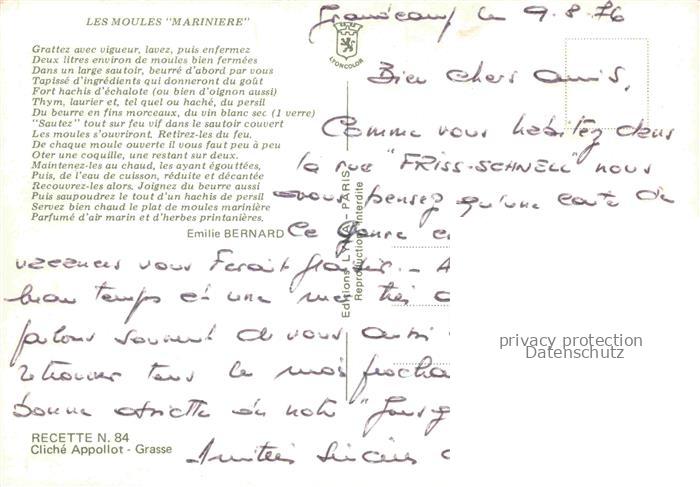 LES MOULES "MARINIERE"
Grattez avec vigueur, lavez, puis enfermez
Deux litres environ de moules bien fermées
Dans un large sautoir, beurré d'abord par vous
Tapissé d'ingrédients qui donneront du goût
Fort hachis d'échalote (ou bien d'oignon aussi)
Thym, laurier et, tel quel ou haché, du persil
Du beurre en fins morceaux, du vin blanc sec (1 verre)
"Sautez" tout sur feu vif dans le sautoir couvert
Les moules s'ouvriront. Retirez-les du feu,
De chaque moule ouverte il vous faut peu à peu
Oter une coquille, une restant sur deux.
Maintenez-les au chaud, les ayant égouttées,
Puis, de l'eau de cuisson, réduite et décantée
Recouvrez-les alors. Joignez du beurre aussi
Puis saupoudrez le tout d'un hachis de persil
Servez bien chaud le plat de moules marinière
Parfumé d'air marin et d'herbes printanières.
Emilie BERNARD
RECETTE N. 84
Cliché Appollot - Grasse
LYONCOLOR
Editions LYNA - PARIS
Reproduction interdite
Grandcamp le 9.8.76
Bien chers amis,
Comme vous habitez dans
la rue "FRISS-SCHNELL" nous
avons pensez qu'une carte de
ce genre en
vacances vous ferait plaisir. - A
beau temps et une mer très
parlons souvent de vous aussi
retrouver tous le mois procha
bonne assiette de notre
Amitiés sincères
privacy protection
Datenschutz